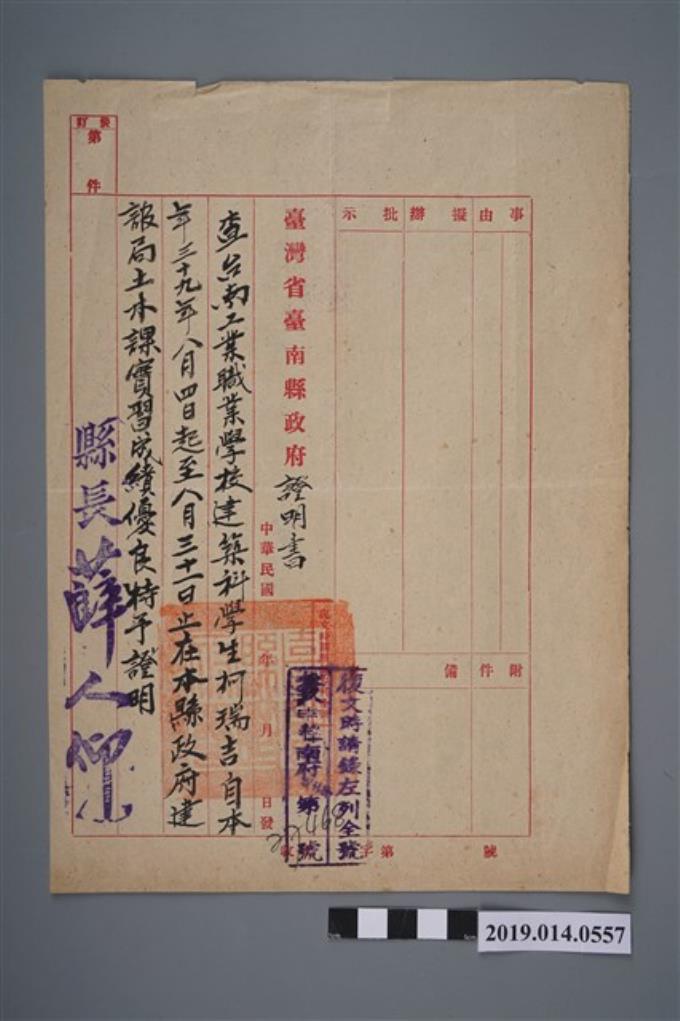 事由
擬辦
批示
附件
備
號
第
字
臺灣省臺南縣政府證明書
中華民國 年 月 日發
復文時請錄左列全號
府
號
27468
查台南工業職業學校建築科學生柯瑞吉自本
年三十九年八月四日起至八月三十一日止在本縣政府建
設局土木課實習成績優良特予證明
縣長薛人仰
裝訂
第 件
2019.014.0557